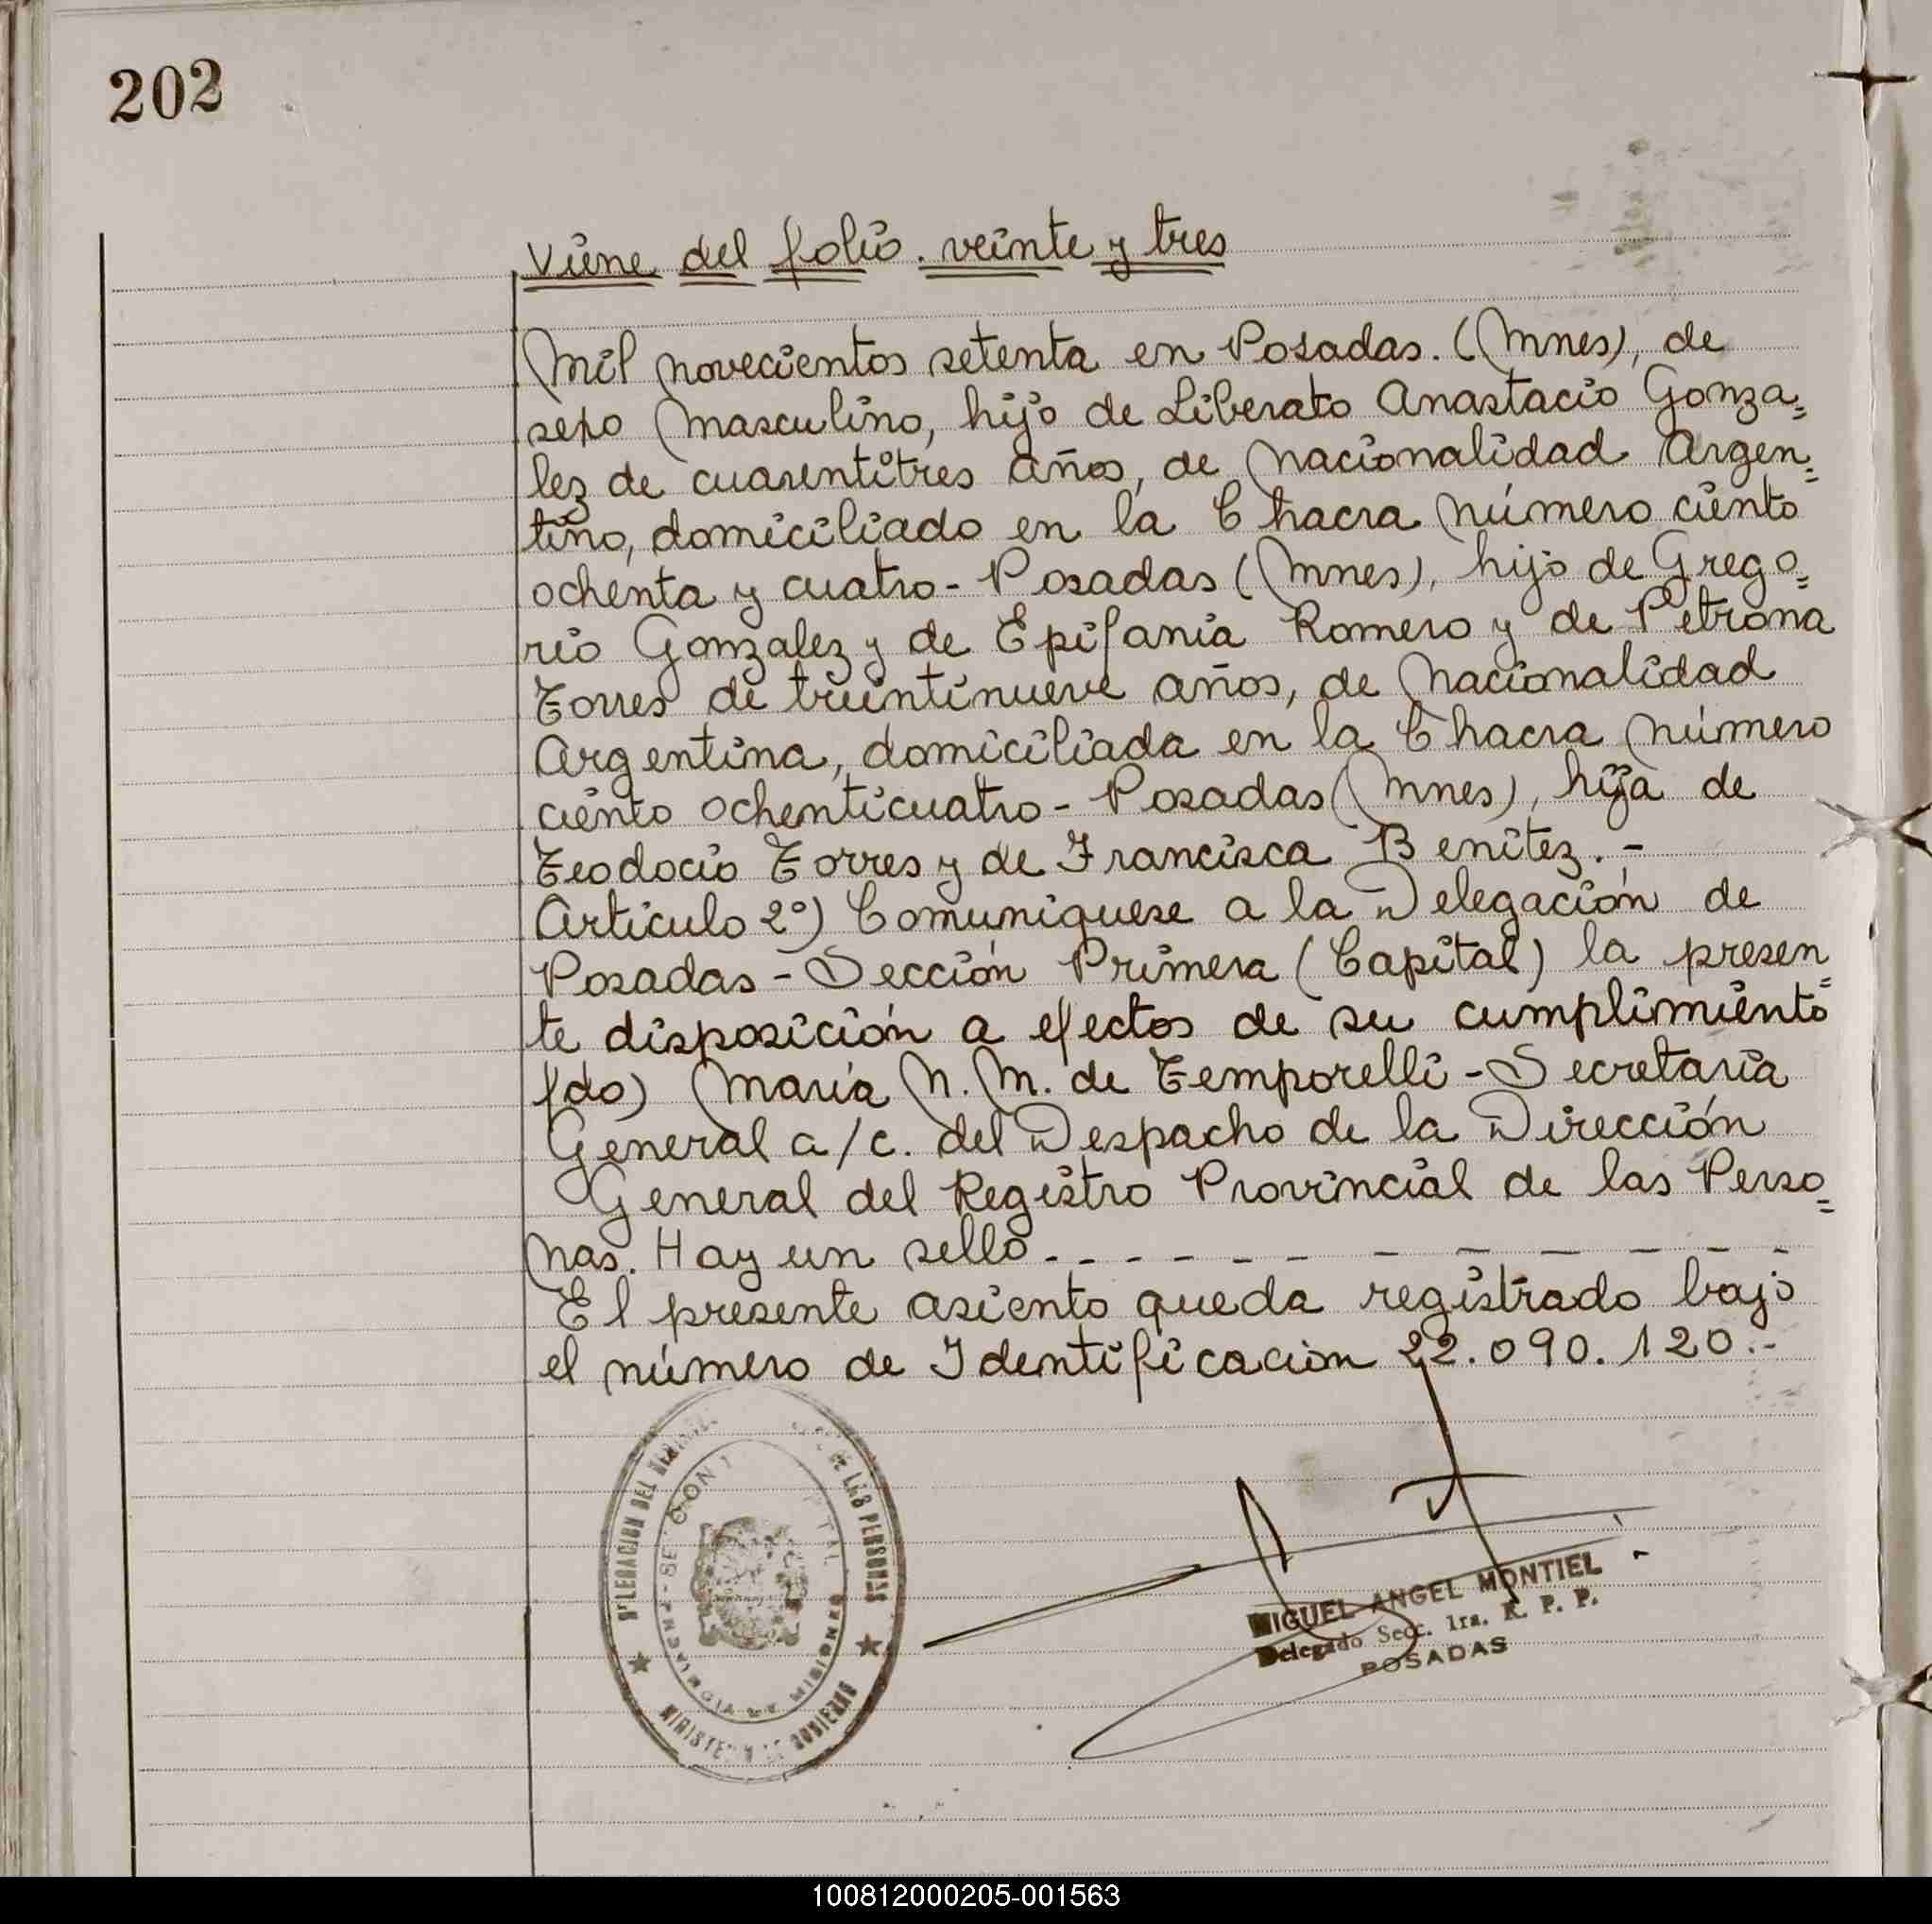 202
Viene del folio. veinte y tres
Mil novecientos setenta en Posadas. (Mnes), de
sexo Masculino, hijo de Liberato Anastacio Gonza=
lez de cuarentitres años, de Nacionalidad Argen=
tino, domiciliado en la Chacra Número ciento
ochenta y cuatro - Posadas (Mnes), hijo de Grego=
rio Gonzalez y de Epifania Romero y de Petrona
Torres de treintinueve años, de Nacionalidad
Argentina, domiciliada en la Chacra Número
ciento ochenticuatro - Posadas (Mnes), hija de
Teodocio Torres y de Francisca Benitez. -
Articulo 2º) Comuniquese a la Delegación de
Posadas - Sección Primera (Capital) la presen=
te disposición a efectos de su cumplimiento
fdo) María N. M. de Temporelli - Secretaria
General a/c. del Despacho de la Dirección
General del Registro Provincial de las Perso=
nas. Hay un sello. - - - - - - - - - - - -
El presente asiento queda registrado bajo
el número de Identificacion 22.090.120.-
DELEGACION DEL DE LAS PERSONAS
PROVINCIA DE MISIONES
GOBIERNO
MIGUEL ANGEL MONTIEL
Delegado Secc. 1ra. R. P. P.
POSADAS
100812000205-001563